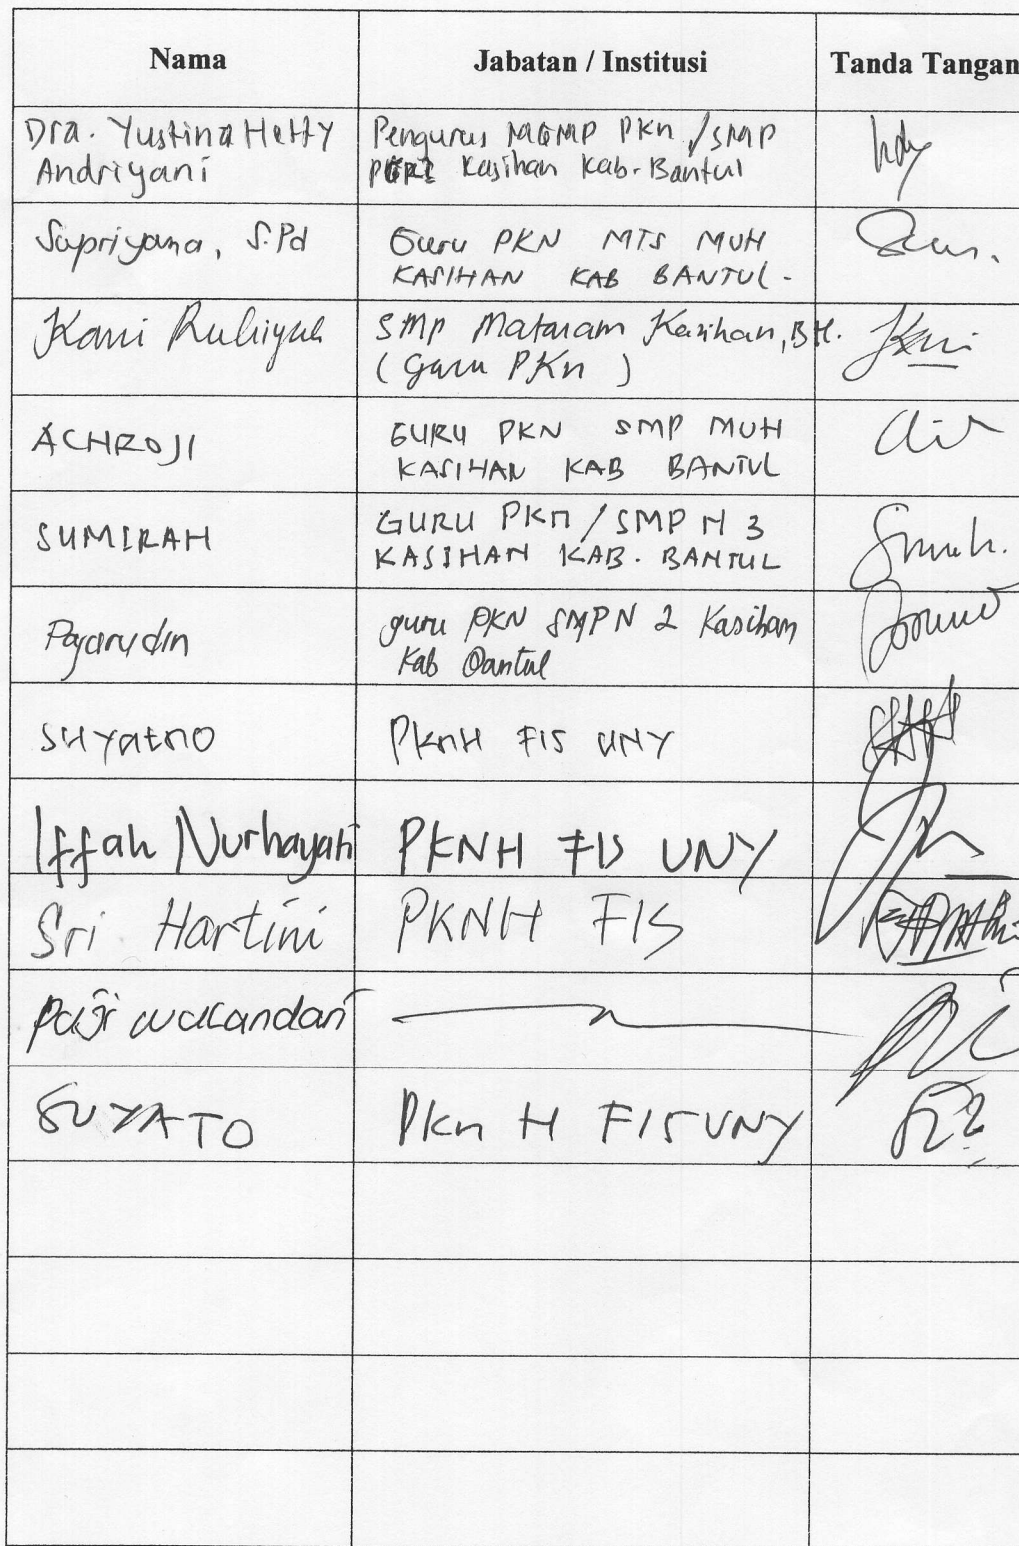 Nama Jabatan / Institusi Tanda Tangan
Dra. Yustina Hetty Pengurus MGMP PKn / SMP
Andriyani PGRI Kasihan Kab. Bantul
Supriyana, S.Pd Guru PKN MTS MUH
KASIHAN KAB BANTUL.
Kami Ruhiyah SMP Mataram Kasihan, Btl.
(Guru PKn)
ACHROJI GURU PKN SMP MUH
KASIHAN KAB BANTUL
SUMIRAH GURU PKn / SMP N 3
KASIHAN KAB. BANTUL
guru PKN SMPN 2 Kasihan
Kab Bantul
Suyatno PknH FIS UNY
Iffah Nurhayati PKNH FIS UNY
Sri Hartini PKNH FIS
Puji Wulandari
SUYATO PKn H FIS UNY